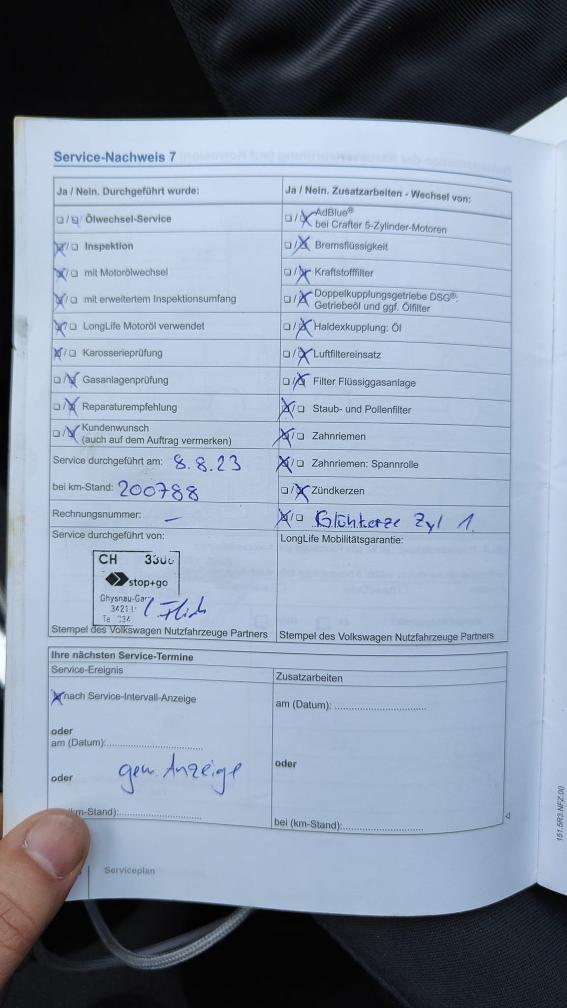 Service-Nachweis 7
Ja / Nein. Durchgeführt wurde:
Ölwechsel-Service
Inspektion
mit Motorölwechsel
mit erweitertem Inspektionsumfang
LongLife Motoröl verwendet
Karosserieprüfung
Gasanlagenprüfung
Reparaturempfehlung
Kundenwunsch
(auch auf dem Auftrag vermerken)
Service durchgeführt am: 8.8.23
bei km-Stand: 200788
Rechnungsnummer: –
Service durchgeführt von:
CH
stop+go
Stempel des Volkswagen Nutzfahrzeuge Partners
Ja / Nein. Zusatzarbeiten - Wechsel von:
AdBlue®
bei Crafter 5-Zylinder-Motoren
Bremsflüssigkeit
Kraftstofffilter
Doppelkupplungsgetriebe DSG®:
Getriebeöl und ggf. Ölfilter
Haldexkupplung: Öl
Luftfiltereinsatz
Filter Flüssiggasanlage
Staub- und Pollenfilter
Zahnriemen
Zahnriemen: Spannrolle
Zündkerzen
Glühkerze Zyl 1.
LongLife Mobilitätsgarantie:
Stempel des Volkswagen Nutzfahrzeuge Partners
Ihre nächsten Service-Termine
Service-Ereignis
nach Service-Intervall-Anzeige
oder
am (Datum):
oder
gem. Anzeige
km-Stand):
Zusatzarbeiten
am (Datum):
oder
bei (km-Stand):
Serviceplan
151.5R3.NFZ.00